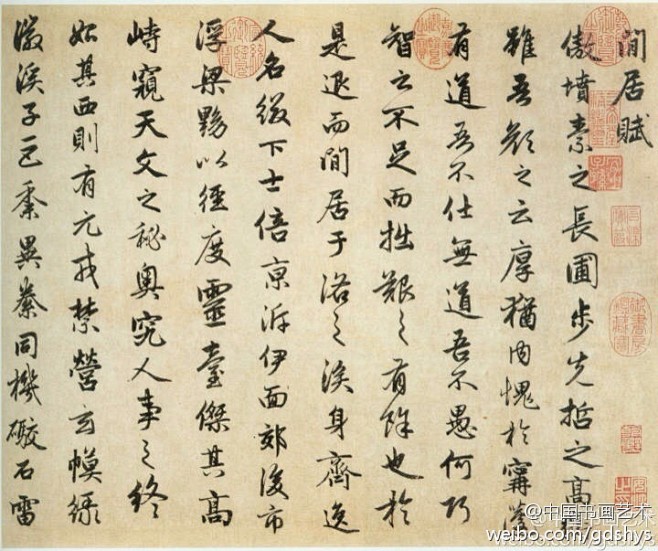 閒居賦
傲墳素之長圃步先哲之高衢
雖吾顏之云厚猶內愧於甯蘧
有道吾不仕無道吾不愚何巧
智之不足而拙艱之有餘也於
是退而閒居于洛之涘身齊逸
人名綴下士倍京泝伊面郊後市
浮梁黝以徑度靈臺傑其高
峙窺天文之秘奧究人事之終
始其西則有元戎禁營玄幙綠
徽溪子巨黍異絭同機礮石雷
@中国书画艺术
weibo.com/gdshys